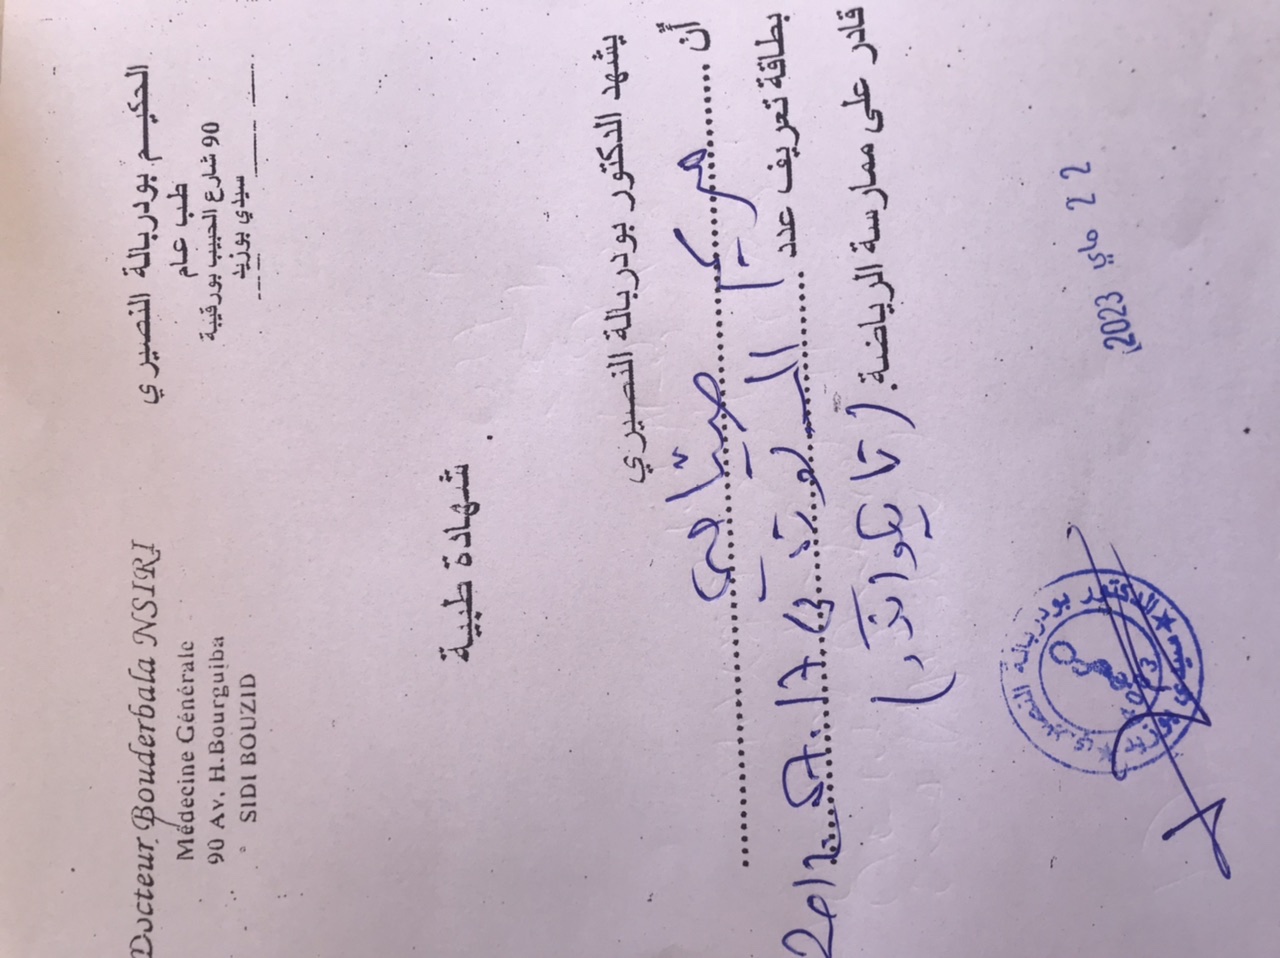 Docteur Bouderbala NSIRI
Médecine Générale
90 Av. H.Bourguiba
SIDI BOUZID
الحكيم بودربالة النصيري
طب عام
90 شارع الحبيب بورقيبة
سيدي بوزيد
شهادة طبية
يشهد الدكتور بودربالة النصيري
أن مريم صيّاحي
بطاقة تعريف عدد المولودة في
قادر على ممارسة الرياضة. (تايكواندو)
22 ماي 2023
بودربالة النصيري